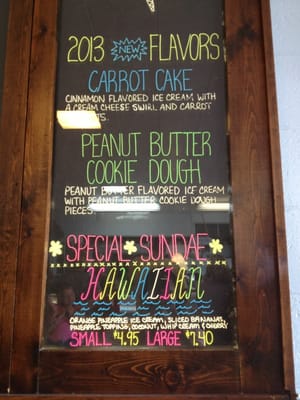 2013 NEW FLAVORS
CARROT CAKE
CINNAMON FLAVORED ICE CREAM WITH
A CREAM CHEESE SWIRL AND CARROT
PEANUT BUTTER
COOKIE DOUGH
PEANUT BUTTER FLAVORED ICE CREAM
WITH PEANUT BUTTER COOKIE DOUGH
PIECES.
SPECIAL SUNDAE
HAWAIIAN
ORANGE PINEAPPLE ICE CREAM, SLICED BANANAS,
PINEAPPLE TOPPING, COCONUT, WHIP CREAM & CHERRY
SMALL $4.95 LARGE $7.40